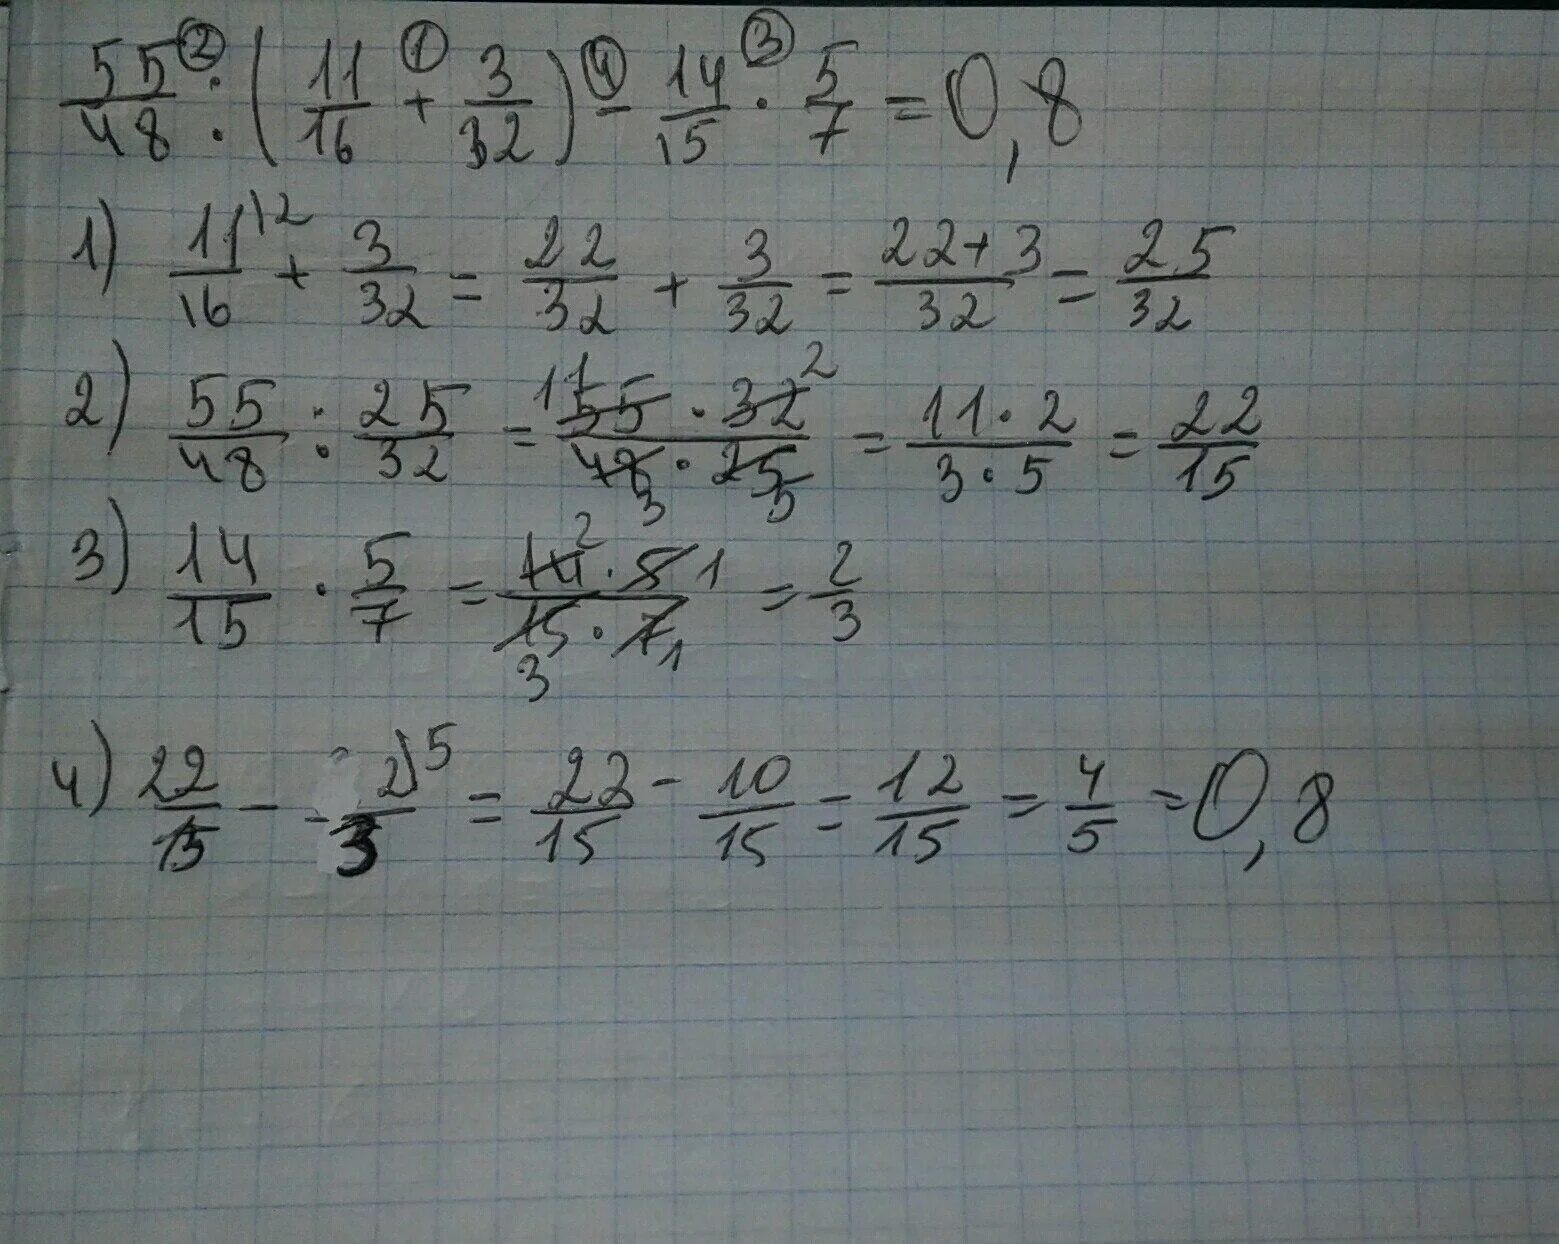 55/48 ② : (11/16 ① + 3/32) ④ - 14/15 ③ · 5/7 = 0,8
1) 11\2/16 + 3/32 = 22/32 + 3/32 = 22+3/32 = 25/32
2) 55/48 : 25/32 = 11 55 · 32 2 / 48 3 · 25 5 = 11·2/3·5 = 22/15
3) 14/15 · 5/7 = 14 2 · 5 1 / 15 3 · 7 1 = 2/3
4) 22/15 - 2\5/3 = 22/15 - 10/15 = 12/15 = 4/5 = 0,8